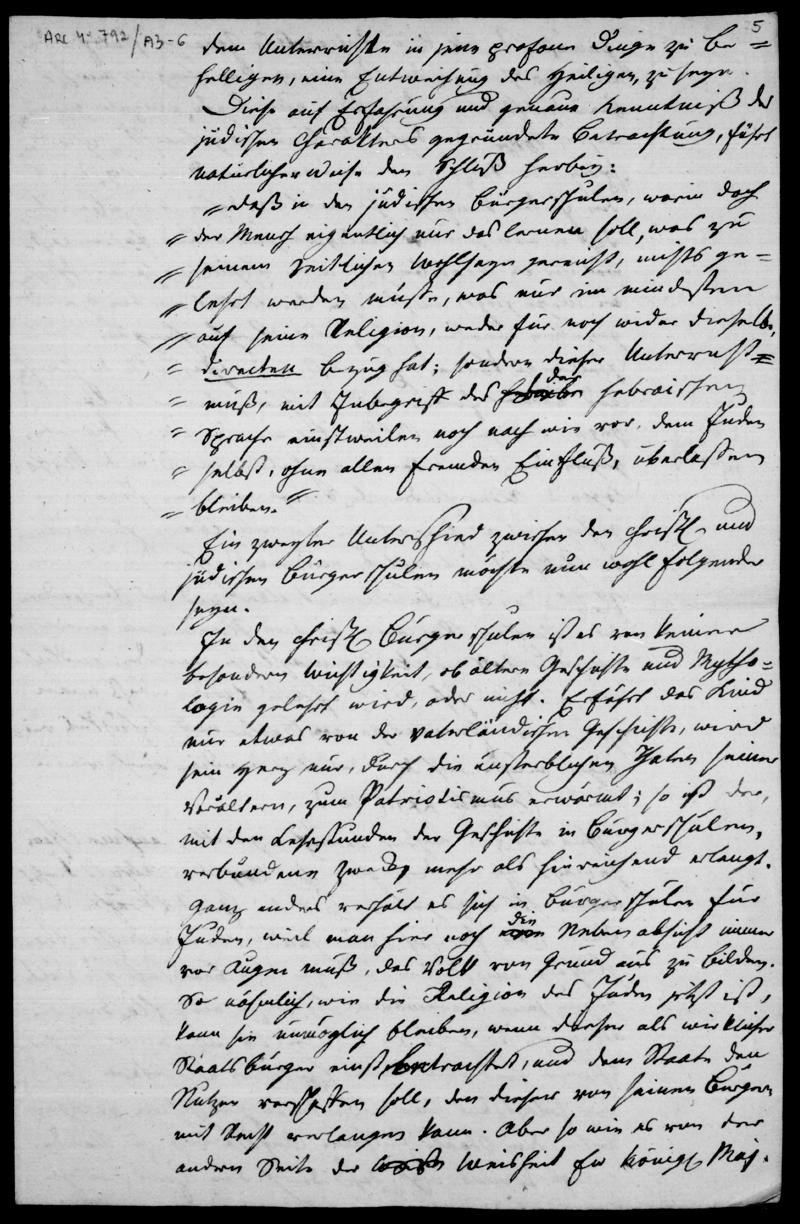 ARC 4° 792/A3-6
5
dem Unterrichte in jene profane Dinge zu be=
helligen, eine Entweihung des Heiligen, zu seyn.
Diese auf Erfahrung und genaue Kenntniß des
jüdischen Charakters gegründete Betrachtung, führt
natürlicherweise den Schluß herbey:
„daß in den jüdischen Bürgerschulen, worin doch
„der Mensch eigentlich nur das lernen soll, was zu
„seinem zeitlichen Wohlseyn gereicht, nichts ge=
„lehrt werden müßte, was nur im mindesten
„auf seine Religion, weder für noch wider dieselbe,
„directen bezug hat; sondern dieser Unterricht
„muß, mit Inbegriff des der hebräischen
„Sprache einstweilen noch nach wie vor, dem Juden
„selbst, ohne allen fremden Einfluß, überlassen
„bleiben.“
Ein zweyter Unterschied zwischen den christl. und
jüdischen Bürgerschulen möchte nun wohl folgender
seyn.
In den christl. Bürgerschulen ist es von keiner
besondern Wichtigkeit, ob ältere Geschichte und Mytho=
logie gelehrt wird, oder nicht. Erfährt das Kind
nur etwas von der vaterländischen Geschichte, wird
sein Herz nur, durch die unsterblichen Thaten seiner
Vorältern, zum Patriotismus erwärmt; so ist der,
mit den Lehrstunden der Geschichte in Bürgerschulen,
verbundene Zweck mehr als hinreichend erlangt.
Ganz anders verhält es sich in Bürgerschulen für
Juden, weil man hier noch die Nebenabsicht immer
vor Augen muß, das Volk von Grund aus zu bilden.
So nähmlich, wie die Religion des Juden jetzt ist,
kann sie unmöglich bleiben, wenn dieser als wirklicher
Staatsbürger einst betrachtet, und dem Staate den
Nutzen verschaffen soll, den dieser von seinen Bürgern
mit Recht verlangen kann. Aber so wie es von der
andern Seite der Weisheit Ew Königl. Maj.